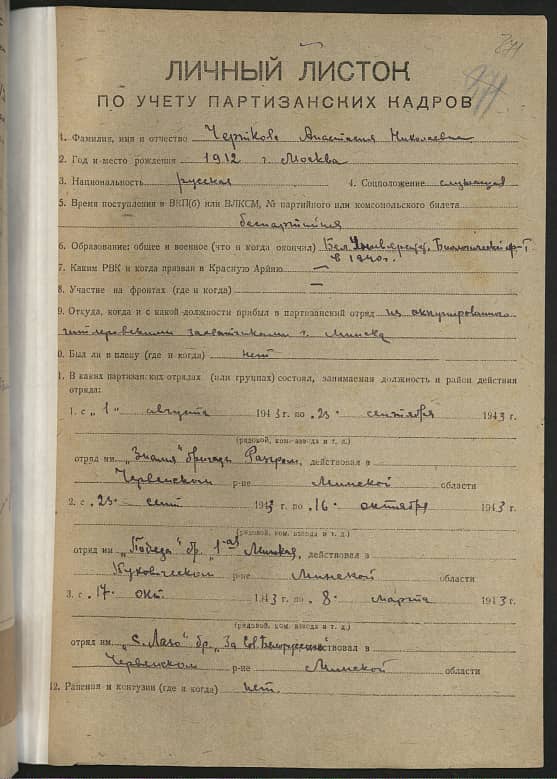 271
271
ЛИЧНЫЙ ЛИСТОК
ПО УЧЕТУ ПАРТИЗАНСКИХ КАДРОВ
1. Фамилия, имя и отчество Черткова Анастасия Николаевна
2. Год и место рождения 1912 г. Москва
3. Национальность русская 4. Соцположение служащая
5. Время поступления в ВКП(б) или ВЛКСМ, № партийного или комсомольского билета
беспартийная
6. Образование: общее и военное (что и когда окончил) Бел. Университ. Биологический ф-т
в 1940 г.
7. Каким РВК и когда призван в Красную Армию —
8. Участие на фронтах (где и когда) —
9. Откуда, когда и с какой должности прибыл в партизанский отряд из оккупированного
гитлеровскими захватчиками г. Минска
0. Был ли в плену (где и когда) нет
1. В каких партизанских отрядах (или группах) состоял, занимаемая должность и район действия
отряда:
1. с „1" августа 1943 г. по 23 сентября 1943 г.
(рядовой, ком. взвода и т. д.)
отряд им. „Знамя" бригады Разгром, действовал в
Червенском р-не Минской области
2. с 23 сент 1943 г. по 16 октября 1943 г.
(рядовой, ком. взвода и т. д.)
отряд им. „Победа" бр. „1-ая Минская, действовал в
Пуховическом р-не Минской области
3. с 17 окт 1943 г. по 8 марта 1943 г.
(рядовой, ком. взвода и т. д.)
отряд им. „С. Лазо" бр. „За Сов. Белоруссию" действовал в
Червенском р-не Минской области
12. Ранения и контузии (где и когда) нет.